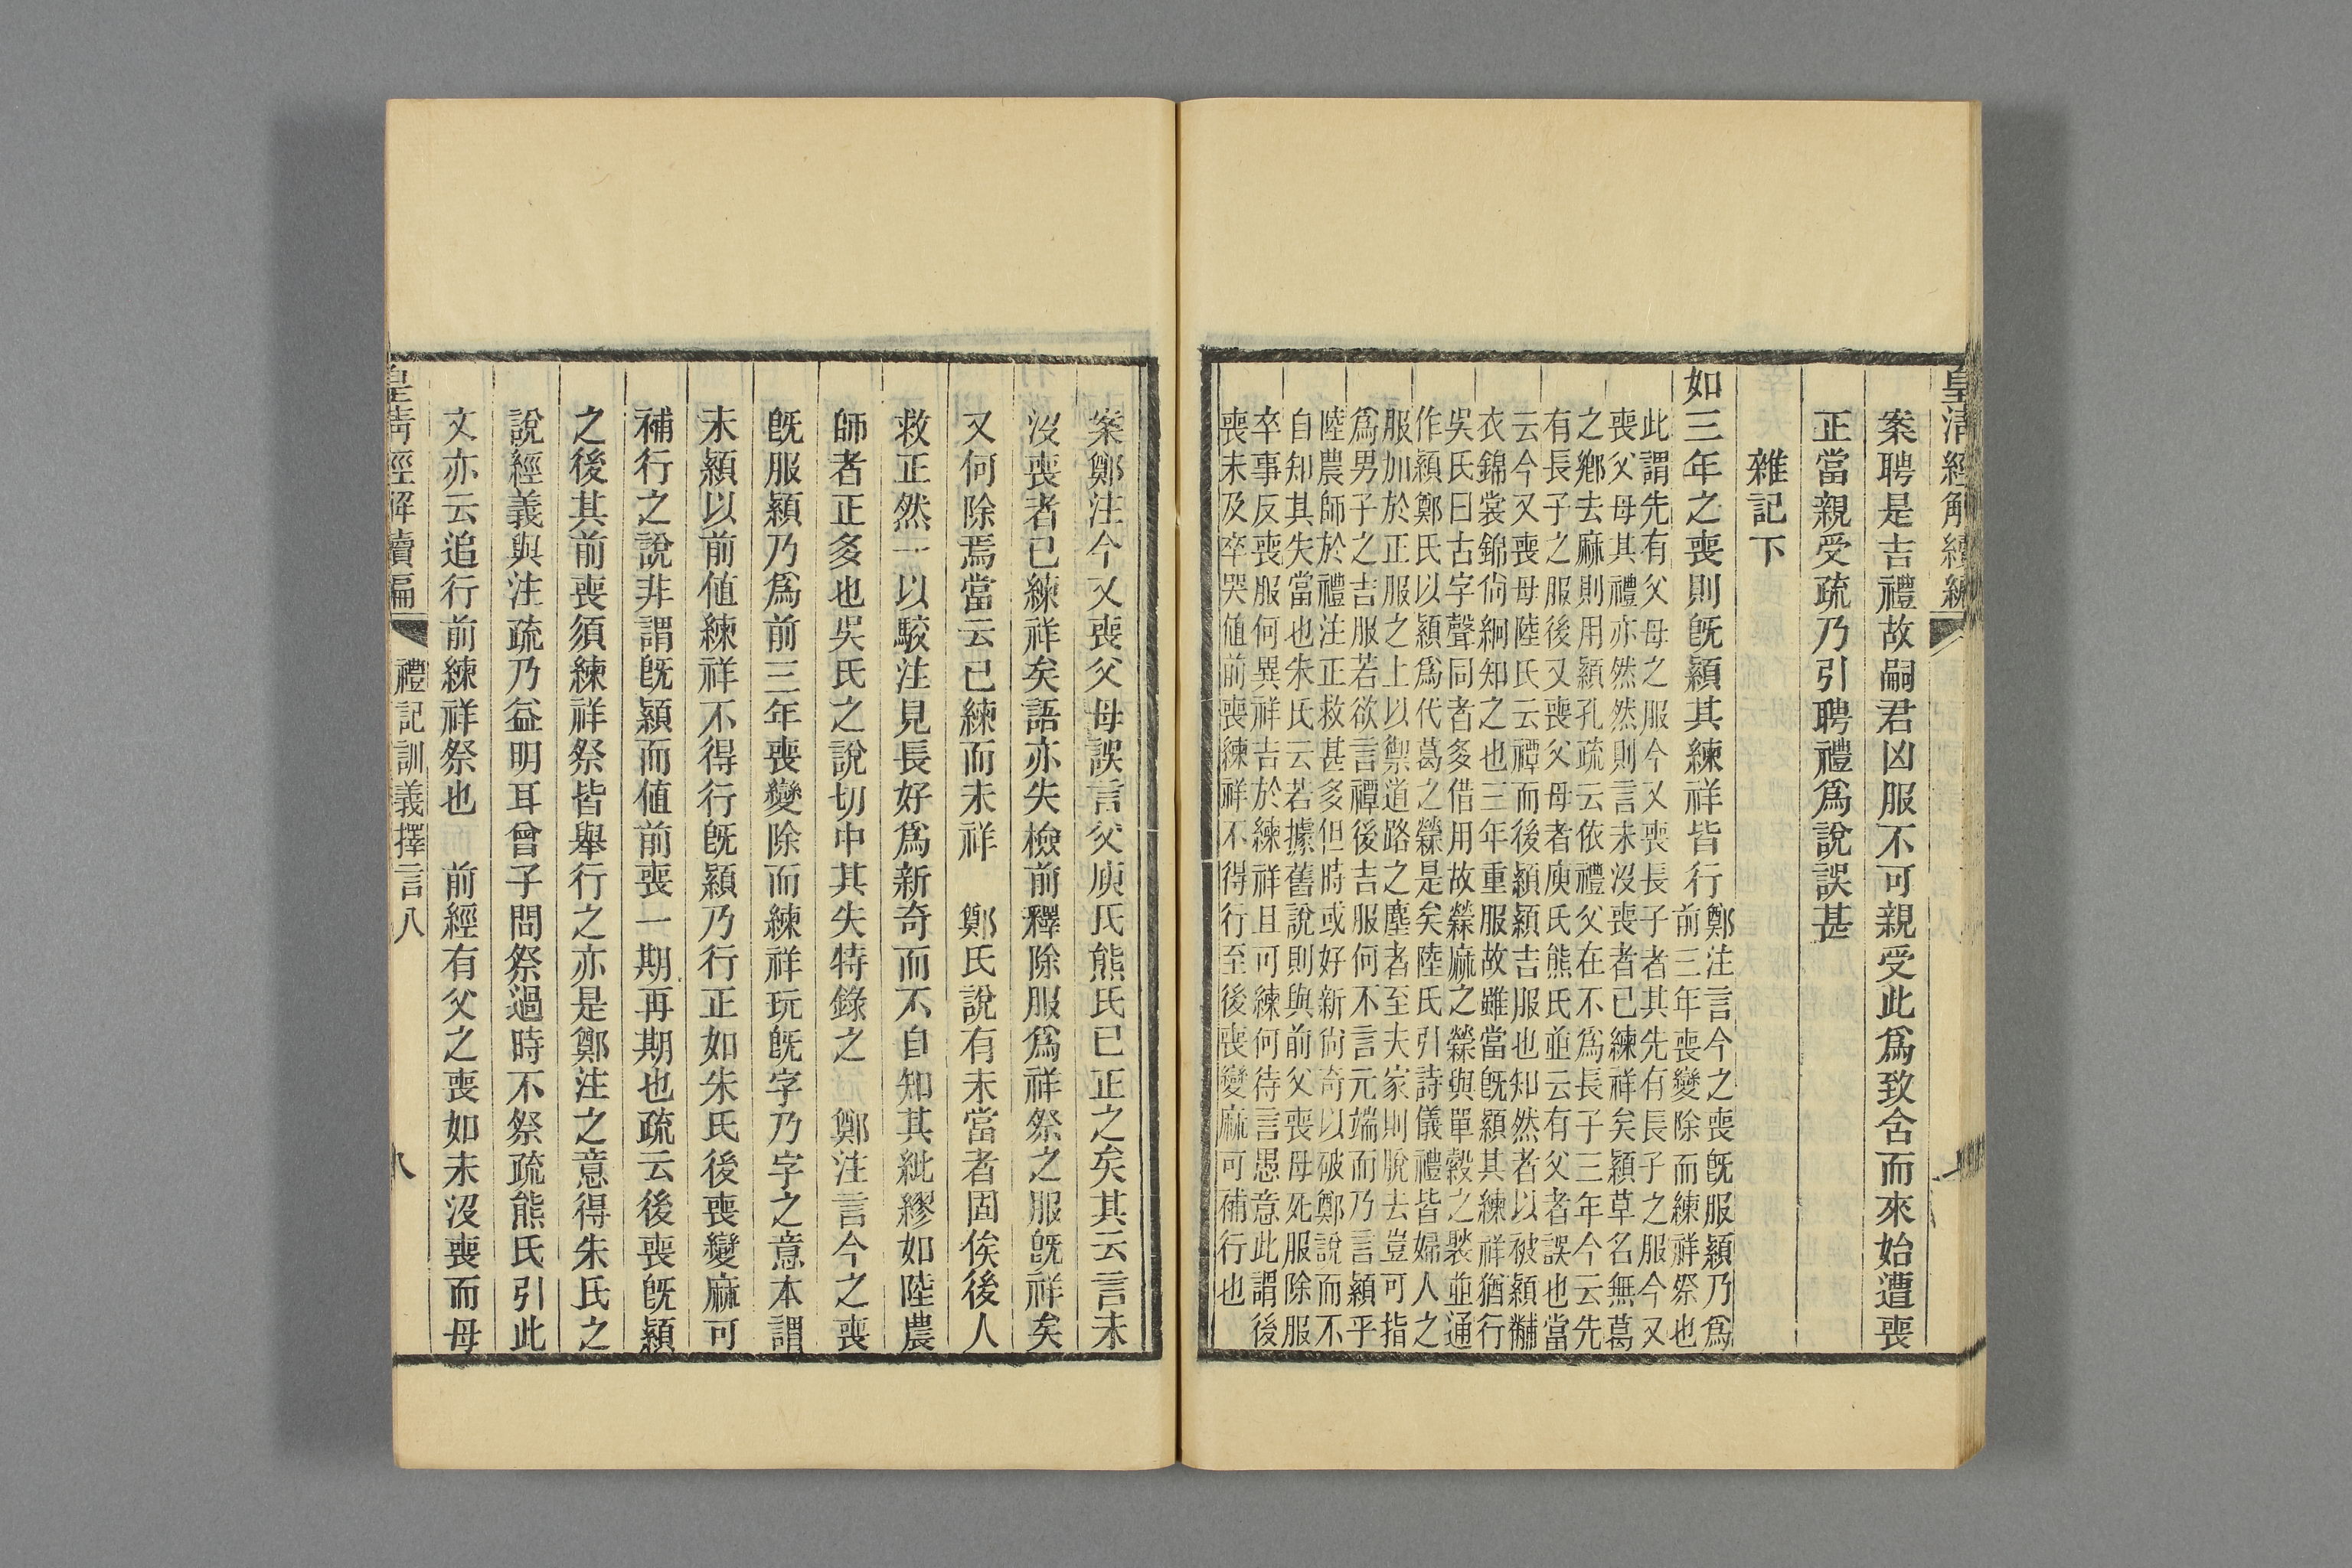 皇清經解續編
案聘是吉禮故嗣君凶服不可親受此爲致含而來始遭喪
正當親受疏乃引聘禮爲說誤甚
雜記下
如三年之喪則旣顈其練祥皆行
鄭注言今之喪旣服顈乃爲
前三年喪變除而練祥祭也
此謂先有父母之服今又喪長子者其先有長子之服今又
喪父母其禮亦然然則言未沒喪者已練祥矣顈草名無葛
之鄉去麻則用顈孔疏云依禮父在不爲長子三年今云先
有長子之服後又喪父母者庾氏熊氏並云有父者誤也當
云今又喪母陸氏云禫而後顈吉服也知然者以被顈黼
衣錦裳錦尙絅知之也三年重服故雖當旣顈其練祥猶行
吳氏曰古字聲同者多借用故檾麻之檾與單縠之褧並通
作顈鄭氏以顈爲代葛之檾是矣陸氏引詩儀禮皆婦人之
服加於正服之上以禦道路之塵者至夫家則脫去豈可指
爲男子之吉服若欲言禫後吉服何不言元端而乃言顈乎
陸農師於禮注正救甚多但時或好新尙奇以破鄭說而不
自知其失當也朱氏云若據舊說則與前父喪母死服除服
卒事反喪服何異祥吉於練祥且可練何待言愚意此謂後
喪未及卒哭値前喪練祥不得行至後喪變麻可補行也
案鄭注今又喪父母誤言父庾氏熊氏已正之矣其云言未
沒喪者已練祥矣語亦失檢前釋除服爲祥祭之服旣祥矣
又何除焉當云已練而未祥　鄭氏說有未當者固俟後人
救正然一以駁注見長好爲新奇而不自知其紕繆如陸農
師者正多也吳氏之說切中其失特錄之　鄭注言今之喪
旣服顈乃爲前三年喪變除而練祥玩旣字乃字之意本謂
未顈以前値練祥不得行旣顈乃行正如朱氏後喪變麻可
補行之說非謂旣顈而値前喪一期再期也疏云後喪旣顈
之後其前喪須練祥祭皆舉行之亦是鄭注之意得朱氏之
說經義與注疏乃益明耳曾子問祭過時不祭疏熊氏引此
文亦云追行前練祥祭也　前經有父之喪如未沒喪而母
皇清經解續編
禮記訓義擇言八
八